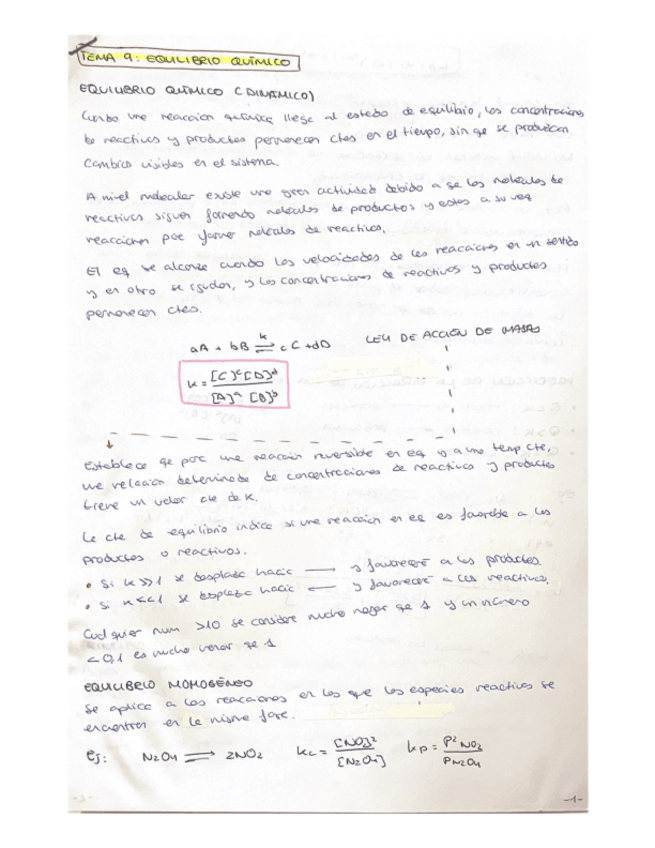 TEMA 9: EQUILIBRIO QUÍMICO
EQUILIBRIO QUÍMICO (DINÁMICO)
Cuando una reacción química llega al estado de equilibrio, las concentraciones
de reactivos y productos permanecen ctes en el tiempo, sin qe se produzcan
cambios visibles en el sistema.
A nivel molecular existe una gran actividad debido a qe las moléculas de
reactivos siguen formando moléculas de productos y estos a su vez
reaccionan para formar moléculas de reactivos.
El eq se alcanza cuando las velocidades de las reacciones en un sentido
y en otro se igualan, y las concentraciones de reactivos y productos
permanecen ctes.
aA + bB ⇌ cC + dD LEY DE ACCIÓN DE MASAS
k
K = [C]ᶜ [D]ᵈ / [A]ᵃ [B]ᵇ
Establece qe para una reacción reversible en eq y a una temp cte,
una relación determinada de concentraciones de reactivos y productos
tiene un valor cte de K.
La cte de equilibrio indica si una reacción en eq es favorable a los
productos o reactivos.
• Si K>>1 se desplaza hacia → y favorecerá a los productos.
• Si K<<1 se desplaza hacia ← y favorecerá a los reactivos.
Cualquier num >10 se considera mucho mayor qe 1 y un número
<0,1 es mucho menor qe 1
EQUILIBRIO HOMOGÉNEO
Se aplica a las reacciones en las que las especies reactivas se
encuentran en la misma fase.
ej: N₂O₄ ⇌ 2NO₂ Kc = [NO₂]² / [N₂O₄] Kp = P² NO₂ / P N₂O₄
-1-